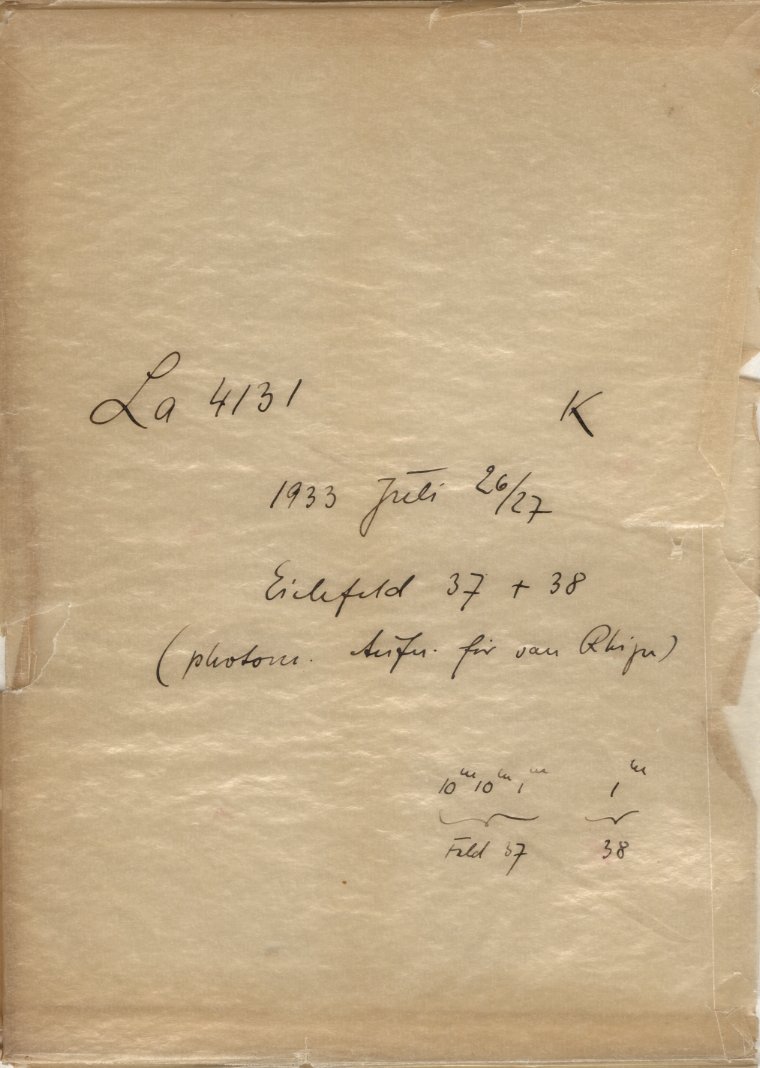 La 4131 K
1933 Juli 26/27
Eichfeld 37 + 38
(photom. Aufn. für van Rhijn)
10ᵐ 10ᵐ 1ᵐ 1ᵐ
Feld 37 38